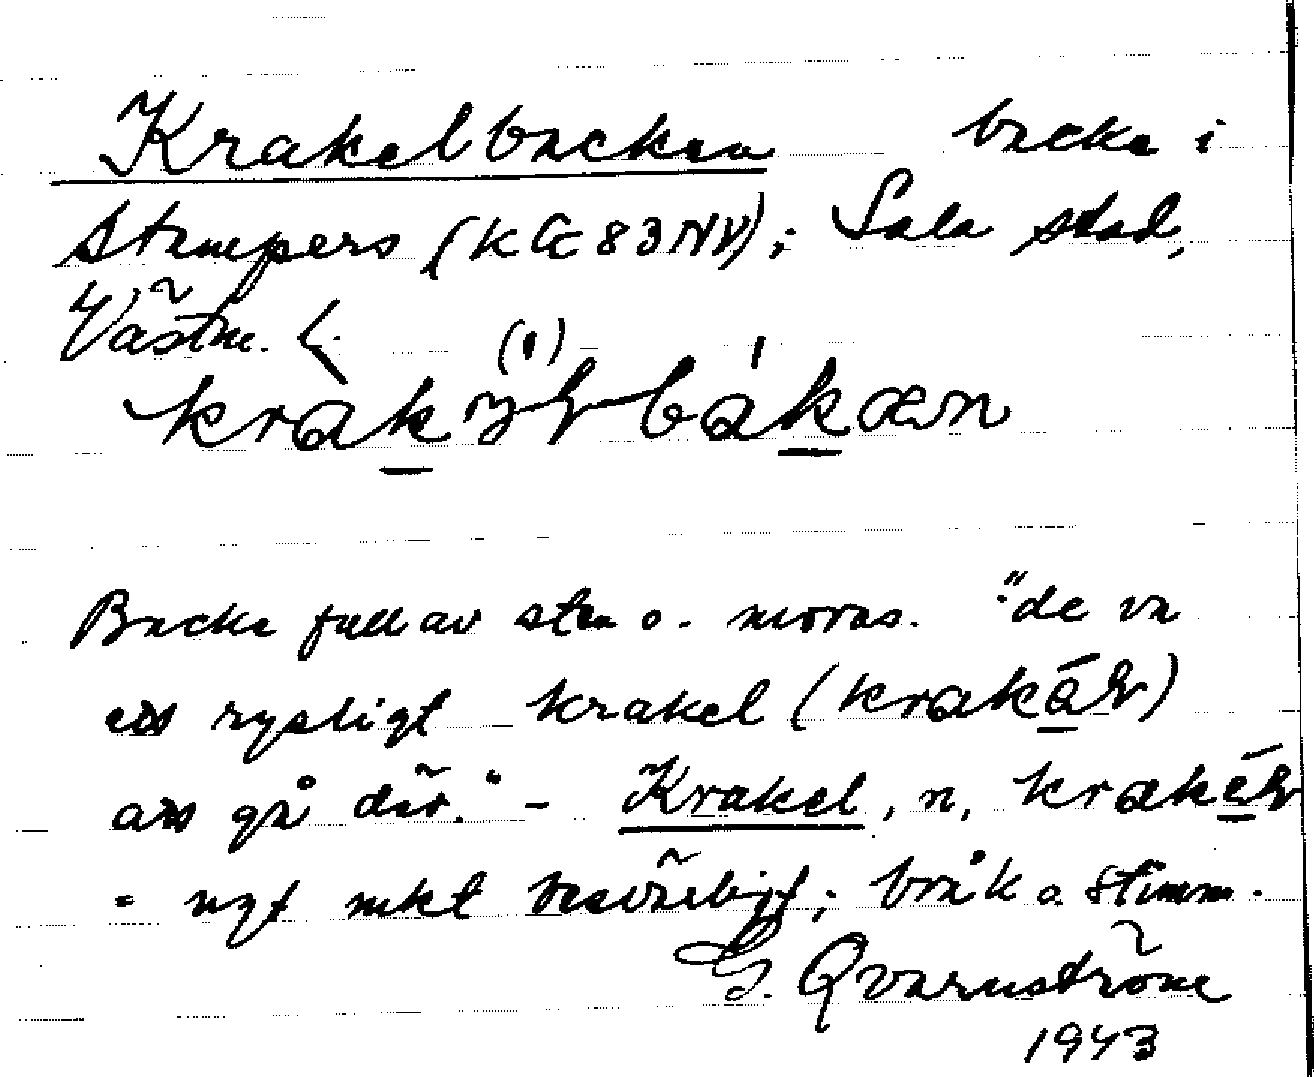 Krakelbacken backe i
Stampers (KG 83 NV); Sala stad,
Västm. l.
Backe full av sten o. moras. "de va
ett rysligt krakel (krakä́l)
att gå där." - Krakel, n,
= ngt mkt besvärligt; bråk o stimm.
G. Qvarnström
1943